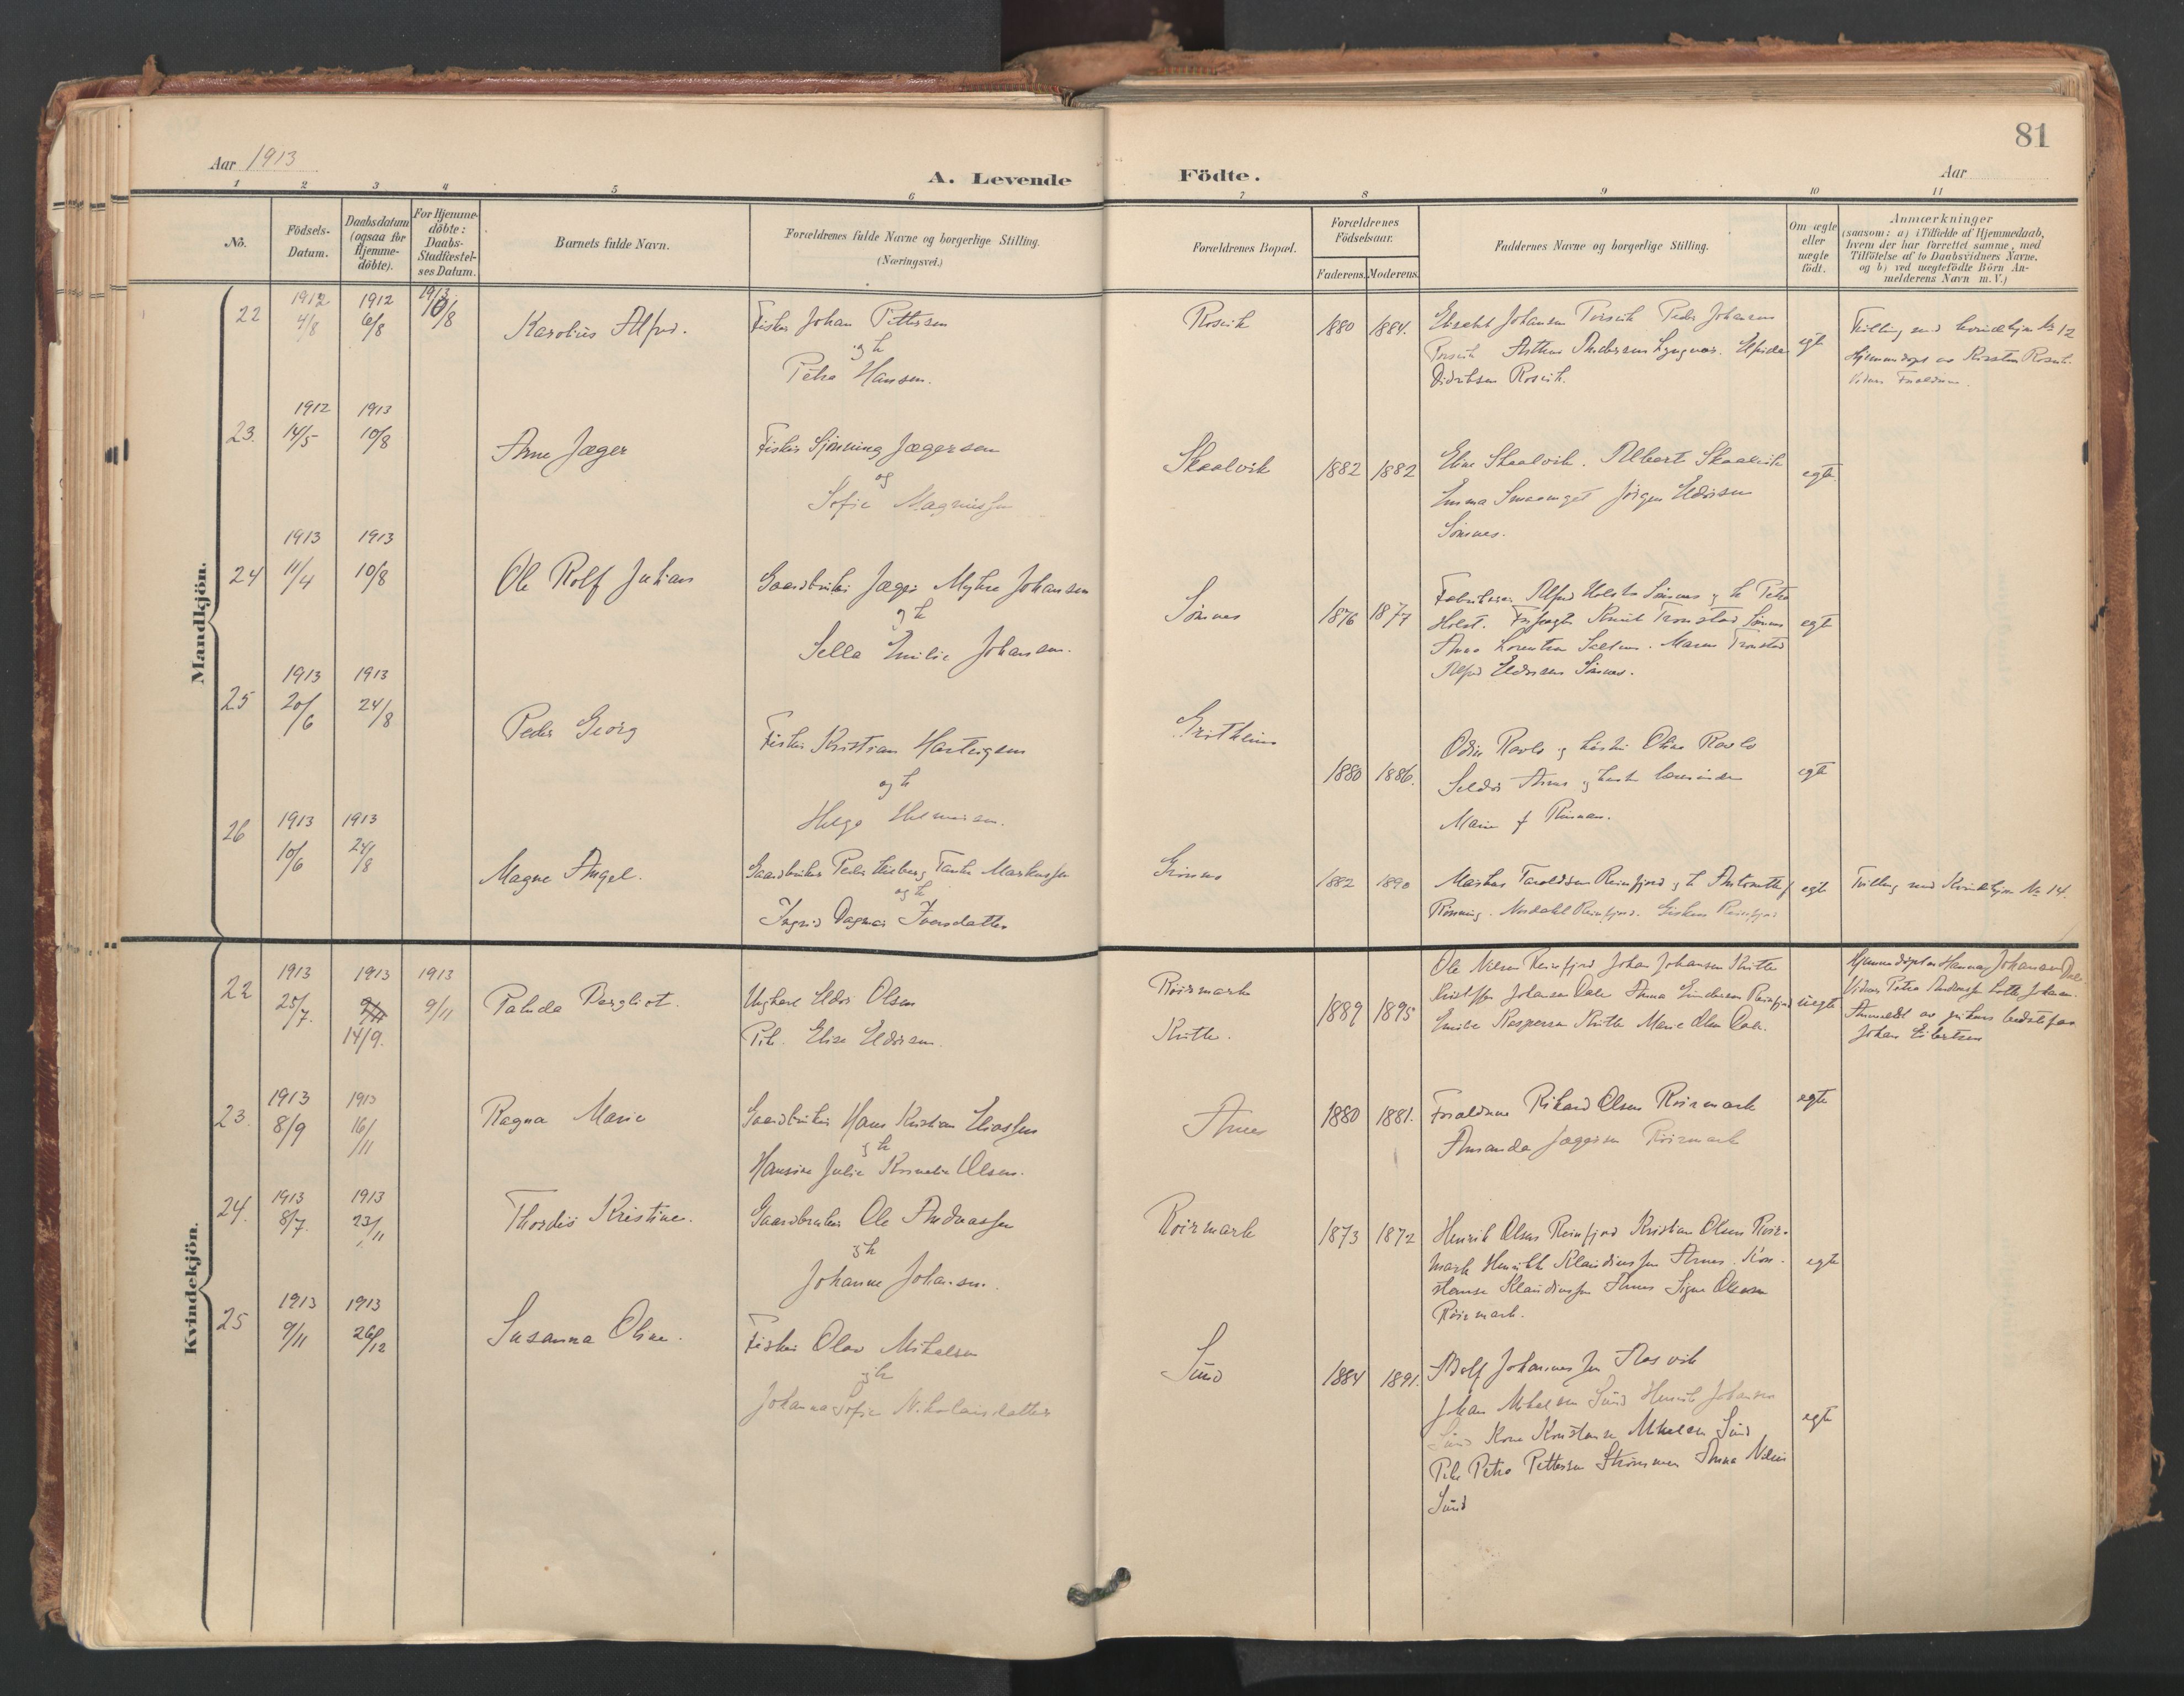 Aar 1913
A. Levende
Födte.
Aar
81
1 2 3 4 5 6 7 8 9 10 11
No.
Födsels-
Datum.
Daabsdatum
(ogsaa for
Hjemme-
döbte).
For Hjemme-
döbte:
Daabs-
Stadfæstel-
ses Datum.
Barnets fulde Navn.
Forældrenes fulde Navne og borgerlige Stilling.
(Næringsvei.)
Forældrenes Bopæl.
Forældrenes
Födselsaar.
Faderens. Moderens.
Faddernes Navne og borgerlige Stilling.
Om ægte
eller
uægte
födt.
Anmærkninger
(saasom: a) i Tilfælde af Hjemmedaab,
hvem der har forrettet samme, med
Tilföielse af to Daabsvidners Navne.
og b) ved uægtefödte Börn An-
melderens Navn m.V.)
Mandkjön.
22
1912
4/8
1912
6/8
1913
10/8
Karolius Alfred.
Fisker Johan Pettersen
og h
Petra Hansen.
Rosvik
1880 1884.
Elisabet Johansen Rosvik Peder Johansen
Rosvik Arthur Andersen Lyngnes
Didriksen Rosvik.
egte
Tvilling med kvindekjøn № 12
Hjemmedøpt av Kirsten Rosvik.
Vidner Forældrene.
23.
1912
14/5
1913
10/8
Arne Jæger
Fisker Sjønning Jægersen
og
Sofie Magnussen
Skaalvik
1882 1882
Eline Skaalvik. Albert Skaalvik
Emma Jørgen Eldorsen
Sørnes.
egte
24
1913
11/4
1913
10/8
Ole Rolf Julian
Gaardbruker Jæger Myhre Johansen
og h
Sella Emilie Johansen.
Sørnes
1876 1877
Alfred Holst Sørnes og h Petra
Holst. Knut Tronstad Sørnes
Anna Lorentzen. Maren Tronstad
Alfred Eldorsen Sørnes.
egte
25
1913
20/6
1913
24/8
Peder Georg
Fisker Kristian Hartvigsen
og h
Helga Helmersen.
1880 1886.
Odin Ravlo og hustru Oline Ravlo
Seldor Arnes og hustru
Marie
egte
26
1913
10/6
1913
24/8
Magne Angel.
Gaardbruker Peder Markussen
og h
Ingrid Dagmar Iversdatter
Grønmo
1882 1890
Markus Taraldsen Reinfjord og h Antonette
Rønning. Nordahl Reinfjord. Reinfjord
egte
Tvilling med Kvindekjøn № 14.
Kvindekjön.
22
1913
25/7.
1913
9/11
14/9.
1913
9/11
Palnda Bergliot.
Ungkarl Eldor Olsen
Pike Elise Eldorsen.
Roirmark
Kvitle.
1889 1895
Ole Nilsen Reinfjord Johan Johansen Kvitle
Kristoffer Johansen Dale Anna Reinfjord
Emilie Kaspersen Kvitle Marie Olsen Dale.
uegte
Hjemmedøpt av Hanna Johansen Dale
Vidner Petra Andersen Lotte Johansen.
Anmeldt av pikens bedstefar
Johan Eibertsen
23.
1913
8/9
1913
16/11
Ragna Marie
Gaardbruker Hans Kristian Eliassen
og h
Hansine Julie Kornelie Olsen.
Arnes
1880 1881.
Forældrene Rikard Olsen Roirmark
Amanda Jægersen Roirmark
egte
24.
1913
8/7.
1913
23/11
Thordis Kristine.
Gaardbruker Ole Andreassen
og h
Johanne Johansen.
Roirmark
1873 1872
Henrik Olsen Reinfjord Kristian Olsen Roir-
mark Henrikke Klaudiussen Arnes. Kon-
stanse Klaudiussen Arnes Signe Olsen
Roirmark.
egte
25
1913
9/11
1913
26/12
Susanna Oline.
Fisker Olav Mikalsen
og h
Johanna Sofie Nikolaisdatter
Sund
1884 1891.
Adolf Johannessen Aasvik
Johan Mikalsen Sund Henrik Johansen
Sund Kone Konstanse Mikalsen Sund
Pike Petra Pettersen Strømmen Anna Nilsen
Sund
egte